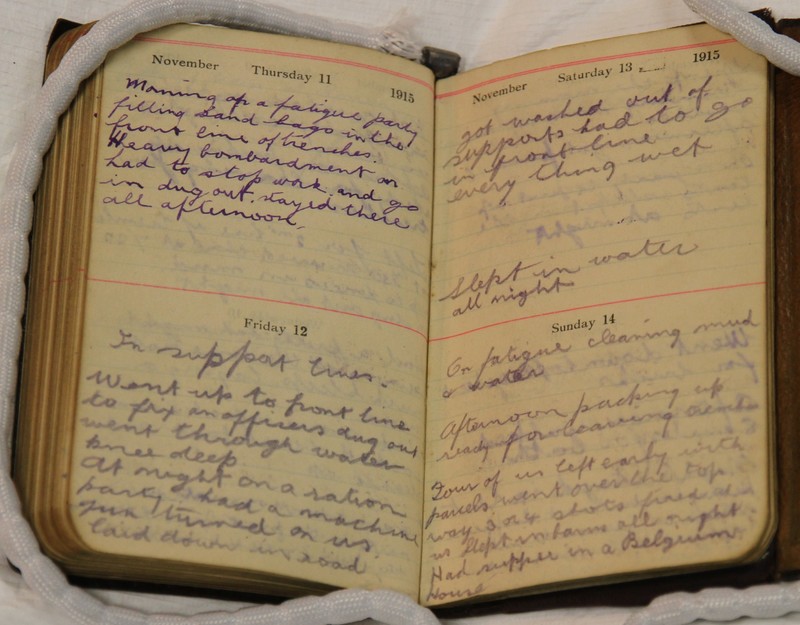 November Thursday 11 1915
Morning on a fatigue party
filling sand bags in the
front line of trenches.
Heavy bombardment on
had to stop work and go
in dug out. stayed there
all afternoon.
Friday 12
In support lines.
Went up to front line
to fix an officers dug out
went through water
knee deep
At night on a ration
party had a machine
gun turned on us
laid down in road
November Saturday 13 1915
got washed out of
supports had to go
in front line
every thing wet
Slept in water
all night
Sunday 14
On fatigue cleaning mud
& water
Afternoon packing up
ready for leaving
Four of us left early with
parcels went over the top
way 3 or 4 shots fired at
us Slept in barns all night
Had supper in a Belgium
House